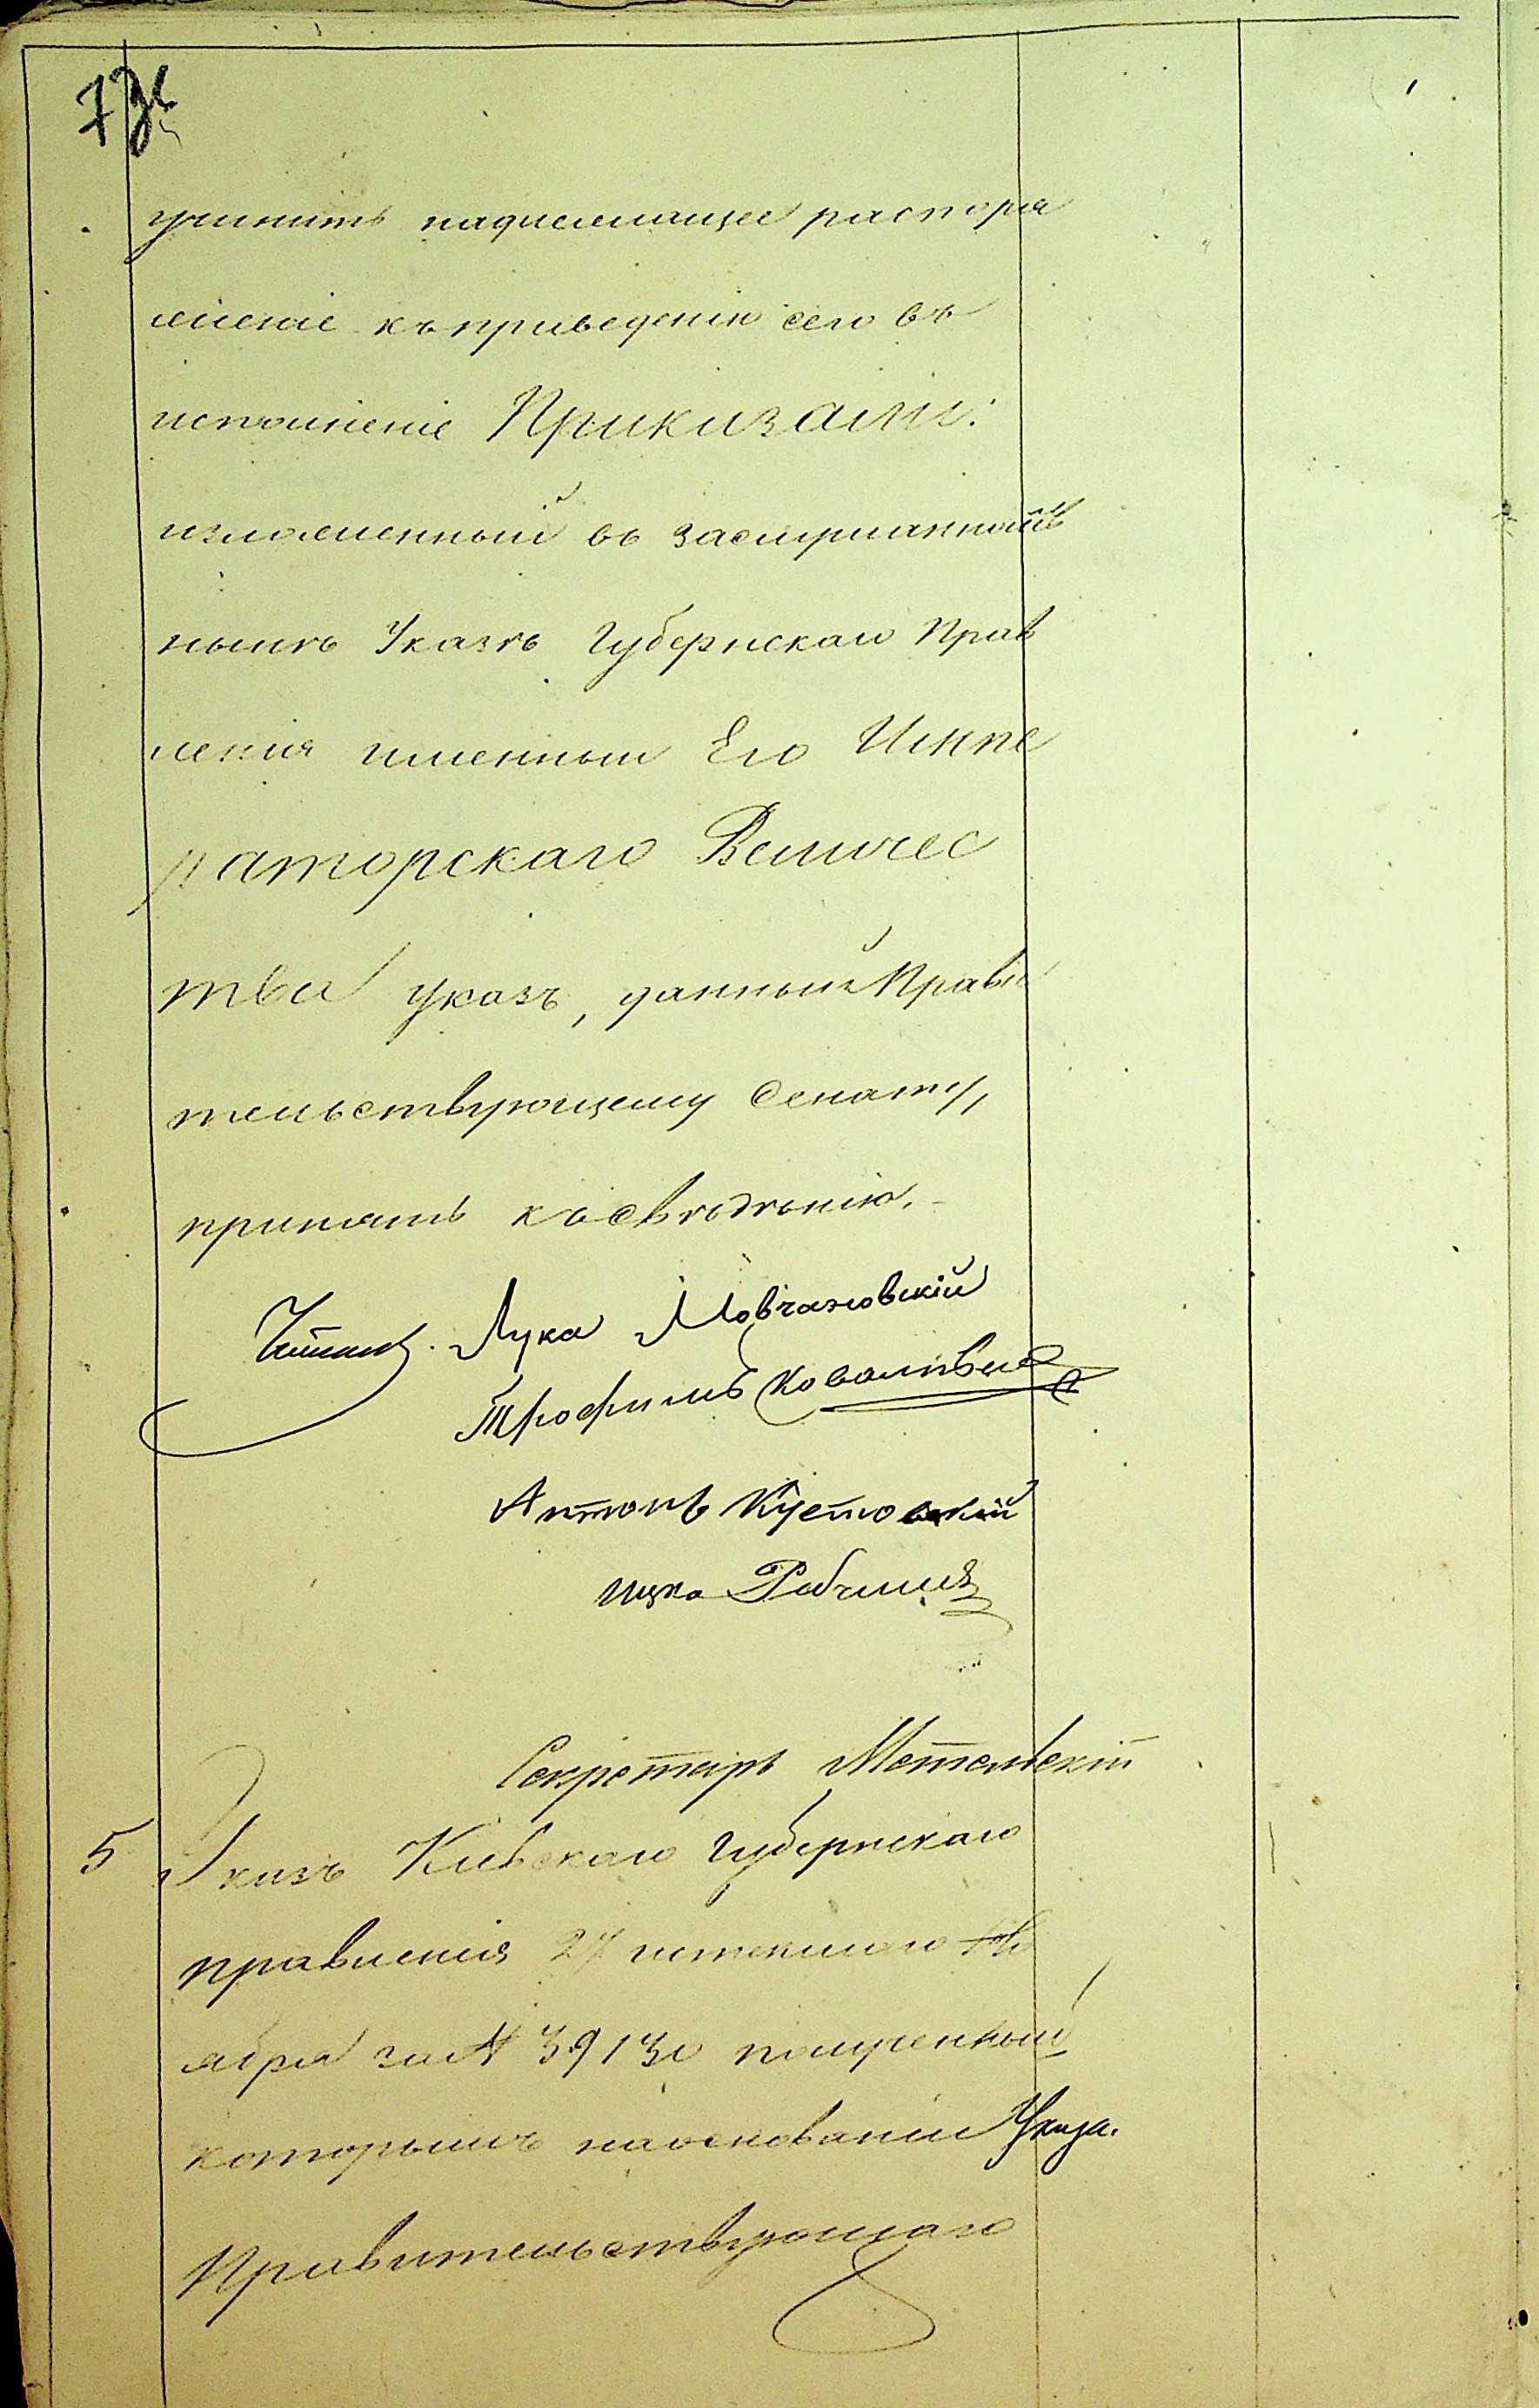 учинить надлежащее распоря
женіе къ приведенію сего въ
исполненіе Приказали:
изложенный въ заслушанномъ
нымъ Указѣ Губернскаго Прав
ленія именный Его Импе
раторскаго Величес
тва указъ, данный Прави
тельствующему Сенату,
принять къ свѣдѣнію.
Лука Мовчановскій
Трофимъ
Антонъ Кустовскій
Ицко
Секретарь Метельскій
5 Указъ Кіевскаго Губернскаго
правленія 27 истекшаго Но
ября за № 39130 полученный
которымъ на основаніи Указа
Правительствующаго